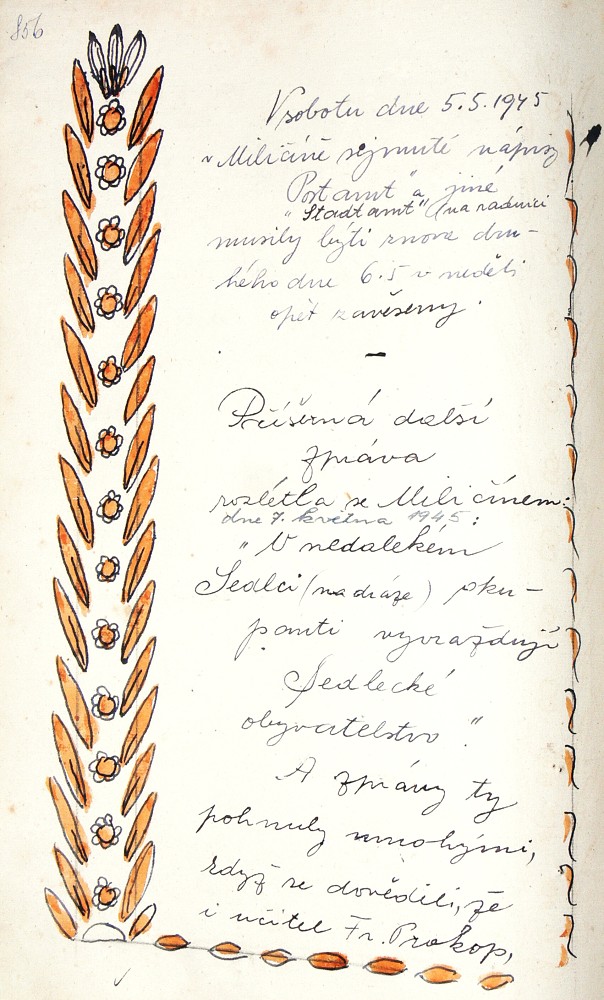 856
V sobotu dne 5.5.1945
v Miličíně sejmuté nápisy
"Postamt" a jiné
"Stadtamt" (na radnici
musily býti znova dru-
hého dne 6.5 v neděli
opět zavěšeny.
–
Příšerná další
zpráva
rozlétla se Miličínem:
dne 7. května 1945:
"V nedalekem
Sedlci (na dráze) oku-
panti vyvražďují
Sedlecké
obyvatelstvo."
A zprávy ty
pohnuly mnohými,
když se dověděli, že
i učitel Fr. Prokop,